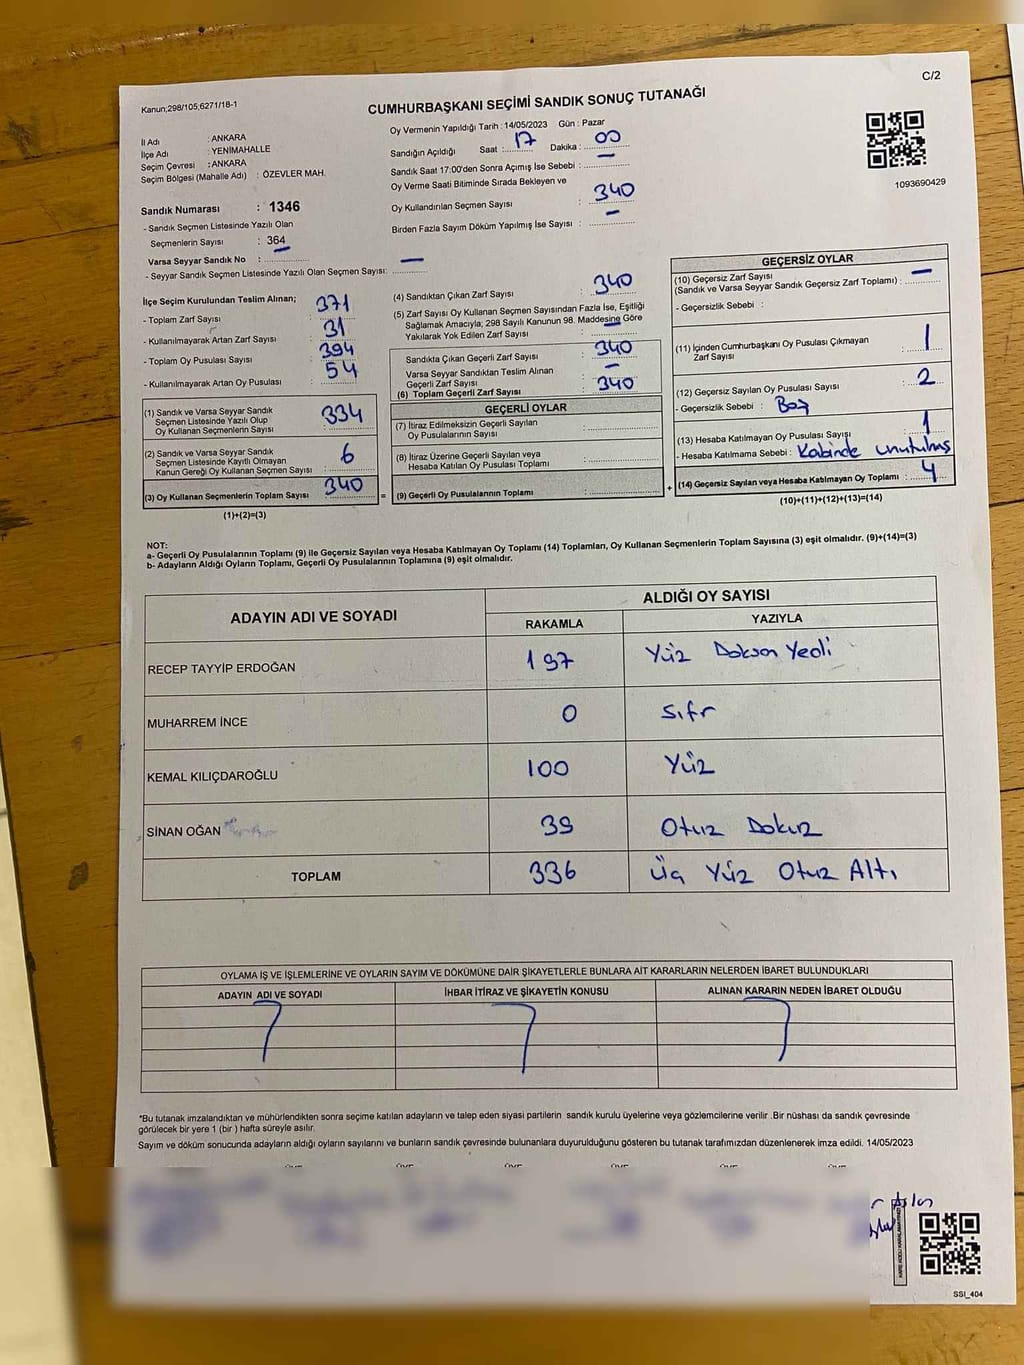 C/2
Kanun;298/105;6271/18-1
CUMHURBAŞKANI SEÇİMİ SANDIK SONUÇ TUTANAĞI
İl Adı : ANKARA
İlçe Adı : YENİMAHALLE
Seçim Çevresi : ANKARA
Seçim Bölgesi (Mahalle Adı) : ÖZEVLER MAH.
Sandık Numarası : 1346
- Sandık Seçmen Listesinde Yazılı Olan
Seçmenlerin Sayısı : 364
Varsa Seyyar Sandık No : —
- Seyyar Sandık Seçmen Listesinde Yazılı Olan Seçmen Sayısı:
Oy Vermenin Yapıldığı Tarih : 14/05/2023 Gün : Pazar
Sandığın Açıldığı Saat : 17 Dakika : 00
Sandık Saat 17:00'den Sonra Açımış İse Sebebi : —
Oy Verme Saati Bitiminde Sırada Bekleyen ve
Oy Kullandırılan Seçmen Sayısı : 340
Birden Fazla Sayım Döküm Yapılmış İse Sayısı : —
1093690429
İlçe Seçim Kurulundan Teslim Alınan;
- Toplam Zarf Sayısı : 371
- Kullanılmayarak Artan Zarf Sayısı : 31
- Toplam Oy Pusulası Sayısı : 394
- Kullanılmayarak Artan Oy Pusulası : 54
(1) Sandık ve Varsa Seyyar Sandık
Seçmen Listesinde Yazılı Olup
Oy Kullanan Seçmenlerin Sayısı : 334
(2) Sandık ve Varsa Seyyar Sandık
Seçmen Listesinde Kayıtlı Olmayan
Kanun Gereği Oy Kullanan Seçmen Sayısı : 6
(3) Oy Kullanan Seçmenlerin Toplam Sayısı : 340
(1)+(2)=(3)
(4) Sandıktan Çıkan Zarf Sayısı : 340
(5) Zarf Sayısı Oy Kullanan Seçmen Sayısından Fazla İse, Eşitliği
Sağlamak Amacıyla, 298 Sayılı Kanunun 98. Maddesine Göre
Yakılarak Yok Edilen Zarf Sayısı : —
Sandıkta Çıkan Geçerli Zarf Sayısı : 340
Varsa Seyyar Sandıktan Teslim Alınan
Geçerli Zarf Sayısı : —
(6) Toplam Geçerli Zarf Sayısı : 340
GEÇERLİ OYLAR
(7) İtiraz Edilmeksizin Geçerli Sayılan
Oy Pusulalarının Sayısı :
(8) İtiraz Üzerine Geçerli Sayılan veya
Hesaba Katılan Oy Pusulası Toplamı :
= (9) Geçerli Oy Pusulalarının Toplamı : +
GEÇERSİZ OYLAR
(10) Geçersiz Zarf Sayısı
(Sandık ve Varsa Seyyar Sandık Geçersiz Zarf Toplamı) : —
- Geçersizlik Sebebi :
(11) İçinden Cumhurbaşkanı Oy Pusulası Çıkmayan
Zarf Sayısı : 1
(12) Geçersiz Sayılan Oy Pusulası Sayısı : 2
- Geçersizlik Sebebi : Boş
(13) Hesaba Katılmayan Oy Pusulası Sayısı : 1
- Hesaba Katılmama Sebebi : Kabinde unutulmuş
(14) Geçersiz Sayılan veya Hesaba Katılmayan Oy Toplamı : 4
(10)+(11)+(12)+(13)=(14)
NOT:
a- Geçerli Oy Pusulalarının Toplamı (9) ile Geçersiz Sayılan veya Hesaba Katılmayan Oy Toplamı (14) Toplamları, Oy Kullanan Seçmenlerin Toplam Sayısına (3) eşit olmalıdır. (9)+(14)=(3)
b- Adayların Aldığı Oyların Toplamı, Geçerli Oy Pusulalarının Toplamına (9) eşit olmalıdır.
ADAYIN ADI VE SOYADI ALDIĞI OY SAYISI
RAKAMLA YAZIYLA
RECEP TAYYİP ERDOĞAN 197 Yüz Doksan Yedi
MUHARREM İNCE 0 Sıfır
KEMAL KILIÇDAROĞLU 100 Yüz
SİNAN OĞAN 39 Otuz Dokuz
TOPLAM 336 Üç Yüz Otuz Altı
OYLAMA İŞ VE İŞLEMLERİNE VE OYLARIN SAYIM VE DÖKÜMÜNE DAİR ŞİKAYETLERLE BUNLARA AİT KARARLARIN NELERDEN İBARET BULUNDUKLARI
ADAYIN ADI VE SOYADI İHBAR İTİRAZ VE ŞİKAYETİN KONUSU ALINAN KARARIN NEDEN İBARET OLDUĞU
*Bu tutanak imzalandıktan ve mühürlendikten sonra seçime katılan adayların ve talep eden siyasi partilerin sandık kurulu üyelerine veya gözlemcilerine verilir .Bir nüshası da sandık çevresinde
görülecek bir yere 1 (bir ) hafta süreyle asılır.
Sayım ve döküm sonucunda adayların aldığı oyların sayılarını ve bunların sandık çevresinde bulunanlara duyurulduğunu gösteren bu tutanak tarafımızdan düzenlenerek imza edildi. 14/05/2023
SSI_404